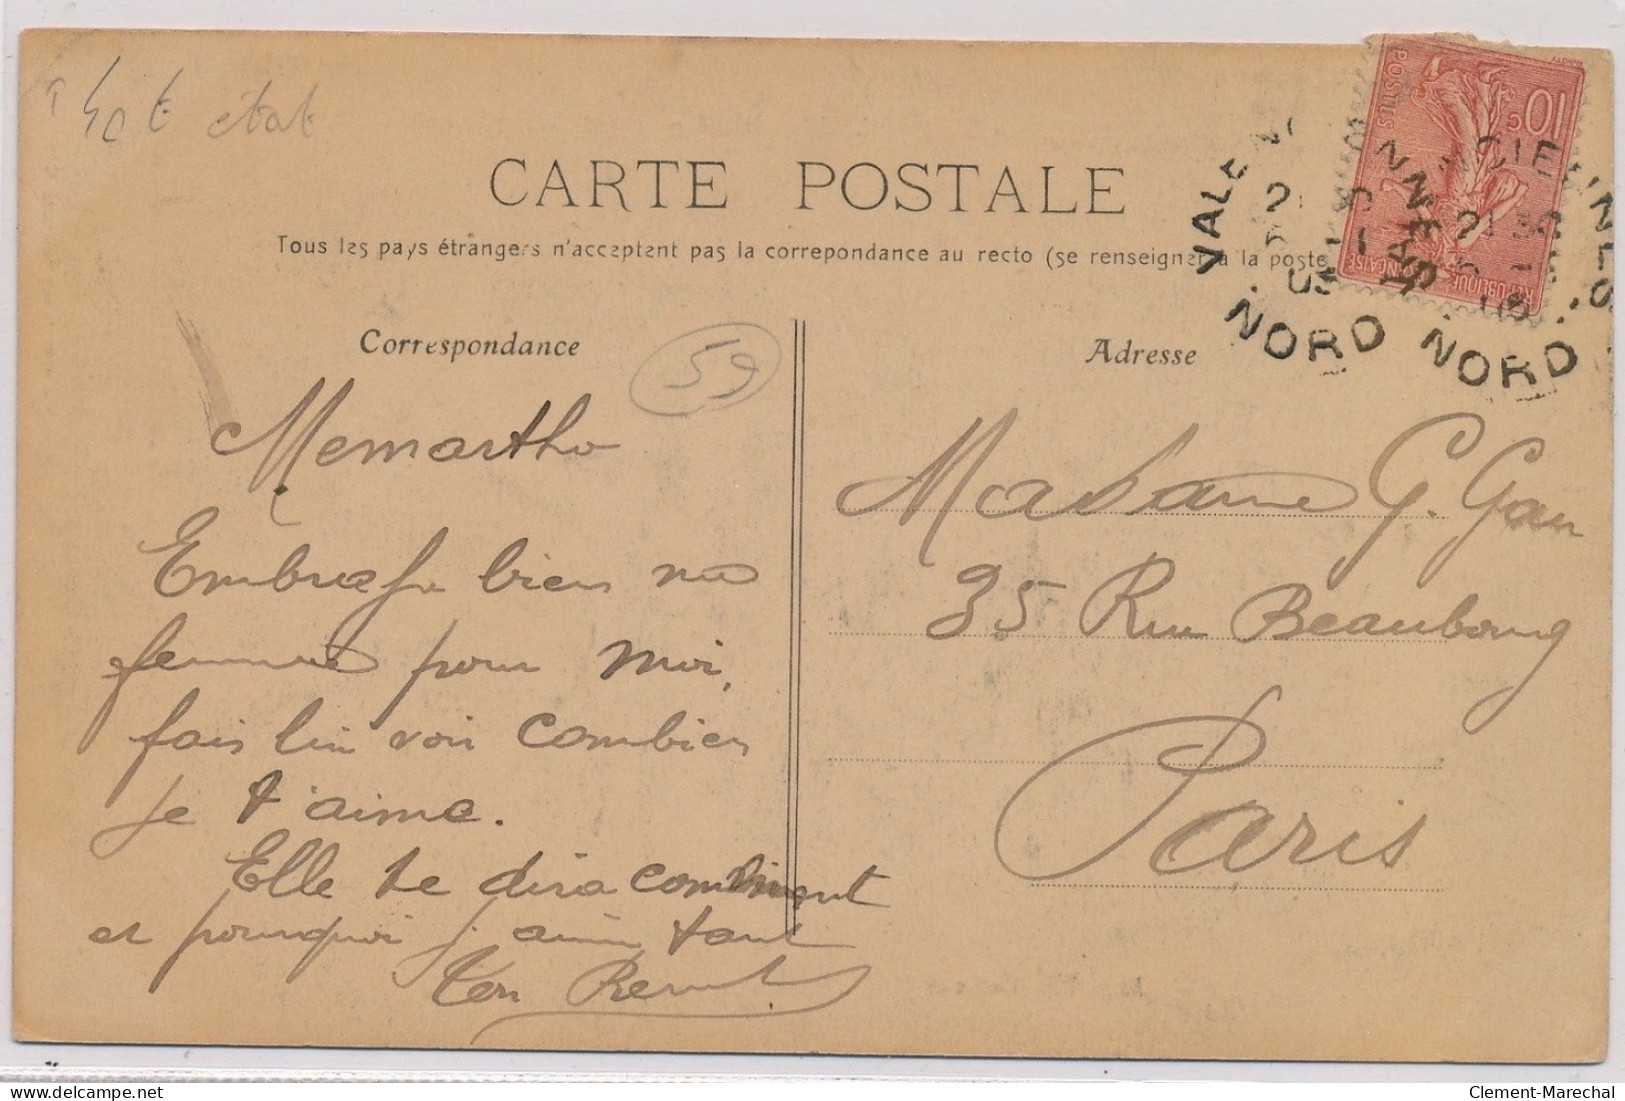 état
CARTE POSTALE
Tous les pays étrangers n'acceptent pas la correpondance au recto (se renseigner à la poste
Correspondance
59
Adresse
10c
POSTES
REPUBLIQUE FRANÇAISE
VALENCIENNES
NORD
VALENCIENNES
NORD
Memartho
Embrasse bien ma
femme pour moi,
fais lui voir combien
je t'aime.
Elle te dira comment
et pourquoi j'aime tant
ton
Madame G. Gau
35 Rue Beaubourg
Paris
Clement-Marechal